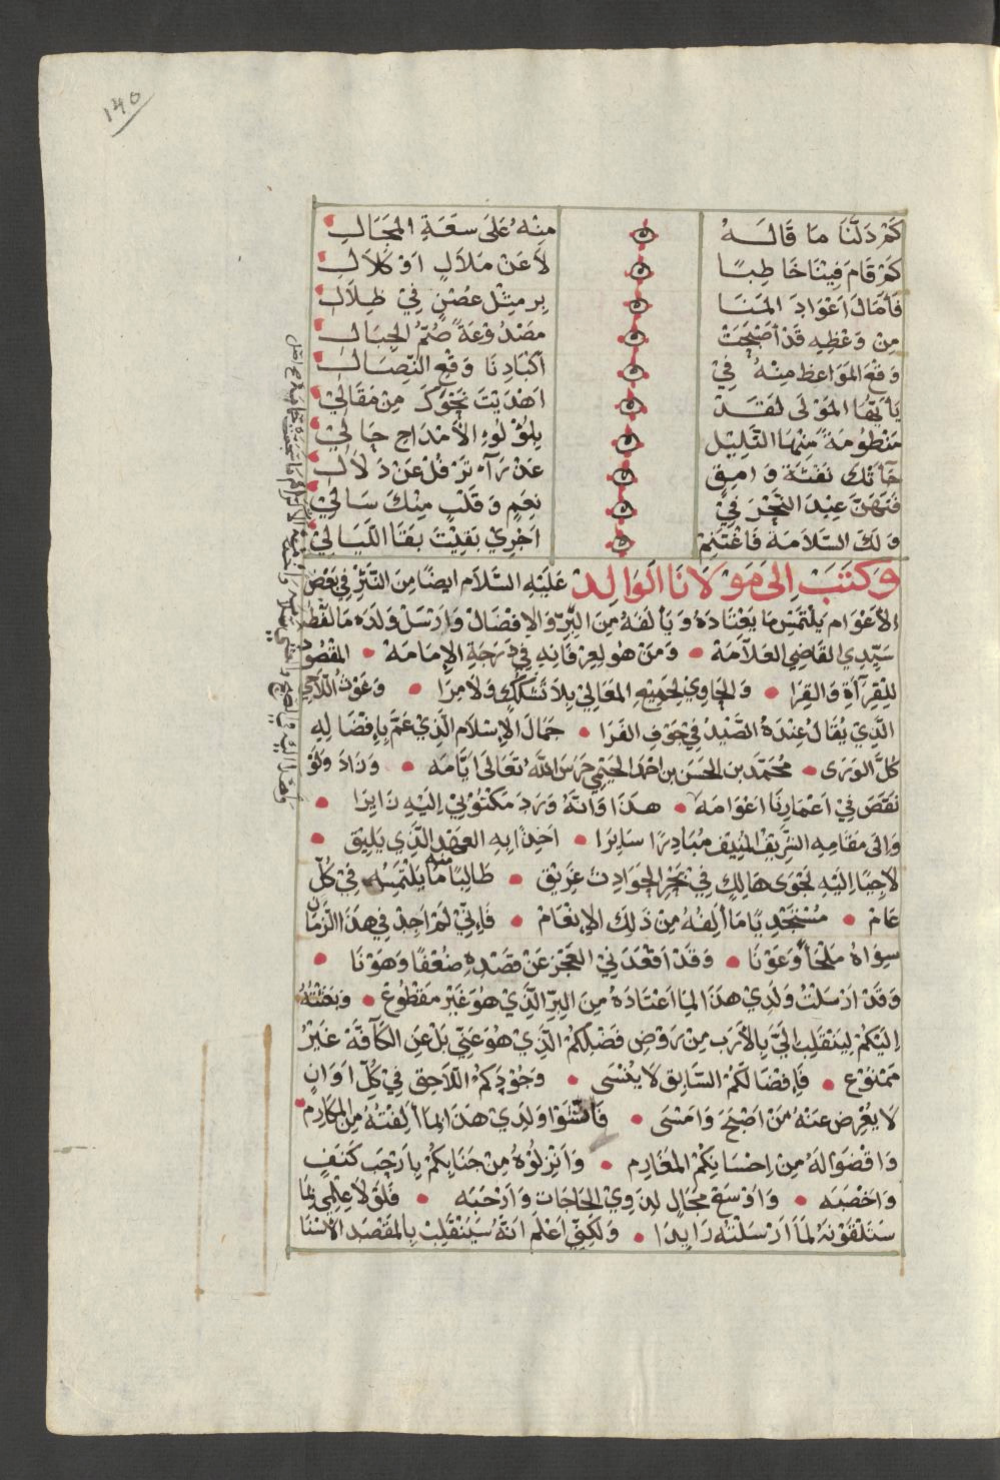 ١٤٥
كَمْ دَلَّنَا مَا قَالَهُ مِنْهُ عَلَى سَعَةِ المَجَالِ
كَمْ قَامَ فِينَا خَاطِبًا لَا عَنْ مَلَالٍ اَوْ كَلَالِ
فَأَمَالَ اَعْوَادَ المَنَا بِرِ مِثْلَ غُصْنٍ فِيْ ظِلَالِ
مِنْ وَعْظِهِ قَدْ أَصْبَحَتْ مَصْدُوْعَةً صُمُّ الجِبَالِ
وَقْعُ المَوَاعِظِ مِنْهُ فِيْ اَكْبَادِنَا وَقْعُ النِّصَالِ
يَا أَيُّهَا المَوْلَى لَقَدْ اَهْدَيْتُ نَحْوَكَ مِنْ مَقَالِيْ
مَنْظُومَةً مِنْهَا القَلِيْل بِلُؤْلُوءِ الأَمْدَاحِ حَالِيْ
جَآءَتْكَ نَفْثَةَ وَامِقٍ عَنْ رَآءِ تَرْفُلُ عَنْ دَلَالِ
فَتَهَنَّ عِيْدَ النَّحْرِ فِيْ نِعَمٍ وَقَلْبٍ مِنْكَ سَالِيْ
وَلَكَ السَّلَامَةُ فَاغْتَنِمْ اَجْرِيْ بَقِيْتَ بَقَا اللَّيَالِيْ
وَكَتَبَ اِلَى مَوْلَانَا الْوَالِدْ عَلَيْهِ السَّلَام ايضًا مِنَ النَّثْرِ فِي بَعْضِ
الأَعْوَام يَلْتَمِسُ مَا يَعْتَادُهُ وَيَأْلَفُهُ مِنَ البِرِّ وَالاِفْضَالْ وَاَرْسَلْ وَلَدَه مَا لَفْظُهُ
سَيِّدِي القَاضِي العَلَّامَهْ • وَمَنْ هُو لِعِرْفَانِهِ فِي دَرَجَةِ الإِمَامَهْ • المَقْصُوْدُ
لِلْقِرَآءَةِ وَالقِرَا • وَالحَاوِيْ لِجَمِيْعِ المَعَالِيْ بِلَا تَشَكُّكٍ وَلَا مِرَا • وَغَوْثُ اللَّاجِي
الَّذِيْ يُقَالُ عِنْدَهُ الصَّيْدُ فِيْ جَوْفِ الفَرَا • جَمَالَ الإِسْلَام الَّذِيْ عَمَّ بِإِفْضَالِهِ
كُلَّ الوَرَى • مُحَمَّد بن الحَسَن بن احمد الحَيْمِي حَرَسَ اللَّهُ تَعَالَى اَيَّامَه • وَزَادَ وَلَوْ
نَقَصَ فِيْ اَعْمَارِنَا اَعْوَامَهْ • هَذَا وَانَّهُ وَرَدَ مَكْتُوْبِيْ اِلَيْهِ زَايِرًا •
وَاَتَى مَقَامِهِ الشَّرِيْف المُنِيْف مُبَادِرًا سَايِرًا • اخِذًا بِهِ العَهْدِ الَّذِي يَلِيْق •
لَاجِيًا اِلَيْهِ لَجْوَى هَالِكٍ فِيْ بَحْرِ الحَوَادِثِ غَرِيْق • طَالِبًا مَا يَلْتَمِسُهُ منه فِيْ كُلِّ
عَامْ • مُسْتَجْدِيًا مَا أَلِفْهُ مِنْ ذَلِكَ الإِنْعَامْ • فَاِنِّيْ لَمْ اَجِدْ فِي هَذَا الزَّمَانِ
سِوَاهُ مَلْجَأً وَعَوْنًا • وَقَدْ اَقْعَدَنِيْ العَجْزُ عَنْ قَصْدِهِ ضُعْفًا وَهَوْنَا •
وَقَدْ اَرْسَلْتُ وَلَدِيْ هَذَا لِمَا اعْتَادَهُ مِنَ البِرِّ الَّذِيْ هُوَ غَيْرُ مَقْطُوعْ • وَبَعَثْتُهُ
اِلَيْكُمْ لِيَنْقَلِبَ اِلَيَّ بِالأَرَبِ مِنْ رَوْضِ فَضْلِكُمُ الَّذِيْ هُوَ عَنِّي بَلْ عَنِ الكَآفَّةِ غَيْرُ
مَمْنُوْع • فَإِفْضَالُكُمُ السَّابِق لَا يُنْسَى • وَجُوْدُكُمُ اللَّاحِق فِيْ كُلِّ اَوَانٍ
لَا يُعْرِضُ عَنْهُ مَنْ اَصْبَحَ وَاَمْسَى • فَأَتْنُوْا وَلَدِيْ هَذَا لِمَا أَلِفْتُهُ مِنَ المَكَارِم
وَاقْضُوْا لَهُ مِنْ اِحْسَانِكُمُ المَغَارِم • وَاَنْزِلُوْهُ مِنْ جَنَابِكُمْ بِاَرْحَبِ كَنَفٍ
وَاَخْصَبِه • وَاَوْسَعِ مَجَالٍ لِذَوِيْ الحَاجَاتِ وَاَرْحَبِه • فَلَوْلَا عِلْمِي بِمَا
سَتَلْقَوْنَهُ لَمَا اَرْسَلْتُهُ رَايِدًا • وَلَكِنِّيْ اَعْلَمُ اَنَّهُ سَيَنْقَلِبْ بِالمَقْصَدِ الأَسْنَا